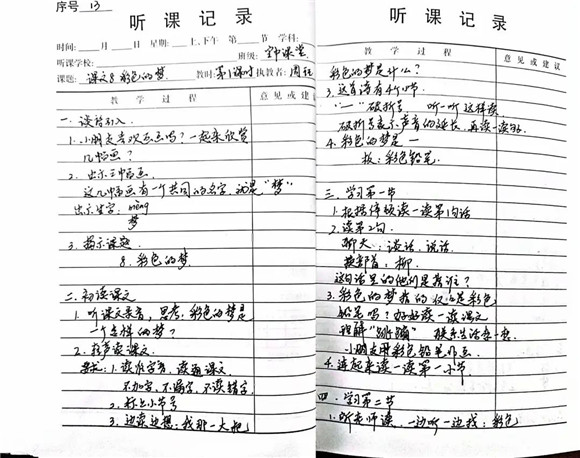 序号 13
听课记录
时间: 月 日 星期: 上、下午 第 节 学科:
听课学校: 班级:
课题: 课文8 彩色的梦 教时: 第1课时 执教者: 周
教学过程 意见或建议
1. 小朋友喜欢画画吗? 一起来欣赏
几幅画?
2. 出示三幅画.
这几幅画有一个共同的名字, 就是“梦”
出示生字: mèng
梦
3. 揭示课题
8. 彩色的梦
二. 初读课文
1. 听课文录音, 思考: 彩色的梦是
一个怎样的梦?
2. 轻声读课文.
要求: 1. 读准字音, 读通课文
不加字, 不漏字, 不读错字,
2. 标上小节号
3. 边读边想: 我那一大把
听课记录
教学过程 意见或建议
彩色的梦是什么?
3. 这首诗有4个小节.
“—”破折号, 听一听 这样读
破折号表示声音的延长, 再读一读
4. 彩色的梦是一
板: 彩色铅笔.
三. 学习第一节
1. 根据停顿读一读第1句话
2. 读第2句.
聊天: 谈话, 说话.
换部首, 柳.
这句话里的他们是指谁?
3. 彩色的梦真的仅仅是彩色
铅笔吗? 好好读一读课文
理解“跳蹦” 联系生活
小朋友用彩色铅笔作画
4. 连起来读一读第一小节.
四. 学习第二节
1. 听老师读, 一边听一边找: 彩色